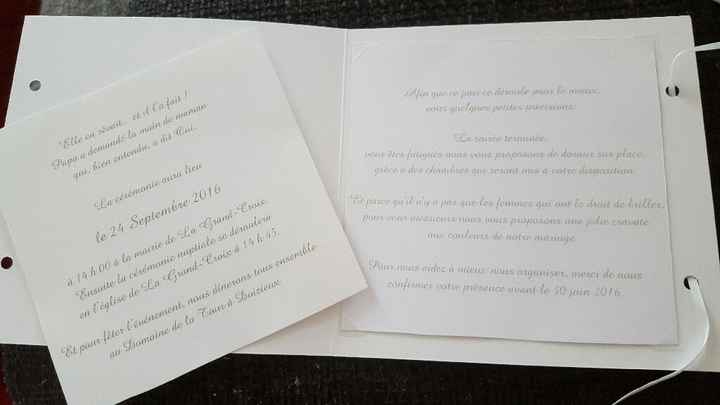 Elle en rêvait... et il l'a fait !
Papa a demandé la main de maman
qui, bien entendu, a dit Oui.
La cérémonie aura lieu
le 24 Septembre 2016
à 14 h 00 à la mairie de La Grand-Croix.
Ensuite la cérémonie nuptiale se déroulera
en l'église de La Grand-Croix à 14 h 45.
Et pour fêter l'événement, nous dînerons tous ensemble
au Domaine de la Tour à Daizieux
Afin que ce jour se déroule pour le mieux,
voici quelques petites précisions:
La soirée terminée,
vous êtes fatigués nous vous proposons de dormir sur place,
grâce à des chambres qui seront mis à votre disposition.
Et parce qu'il n'y a pas que les femmes qui ont le droit de briller,
pour vous messieurs nous vous proposons une jolie cravate
aux couleurs de notre mariage.
Pour nous aidez à mieux nous organiser, merci de nous
confirmer votre présence avant le 30 juin 2016.